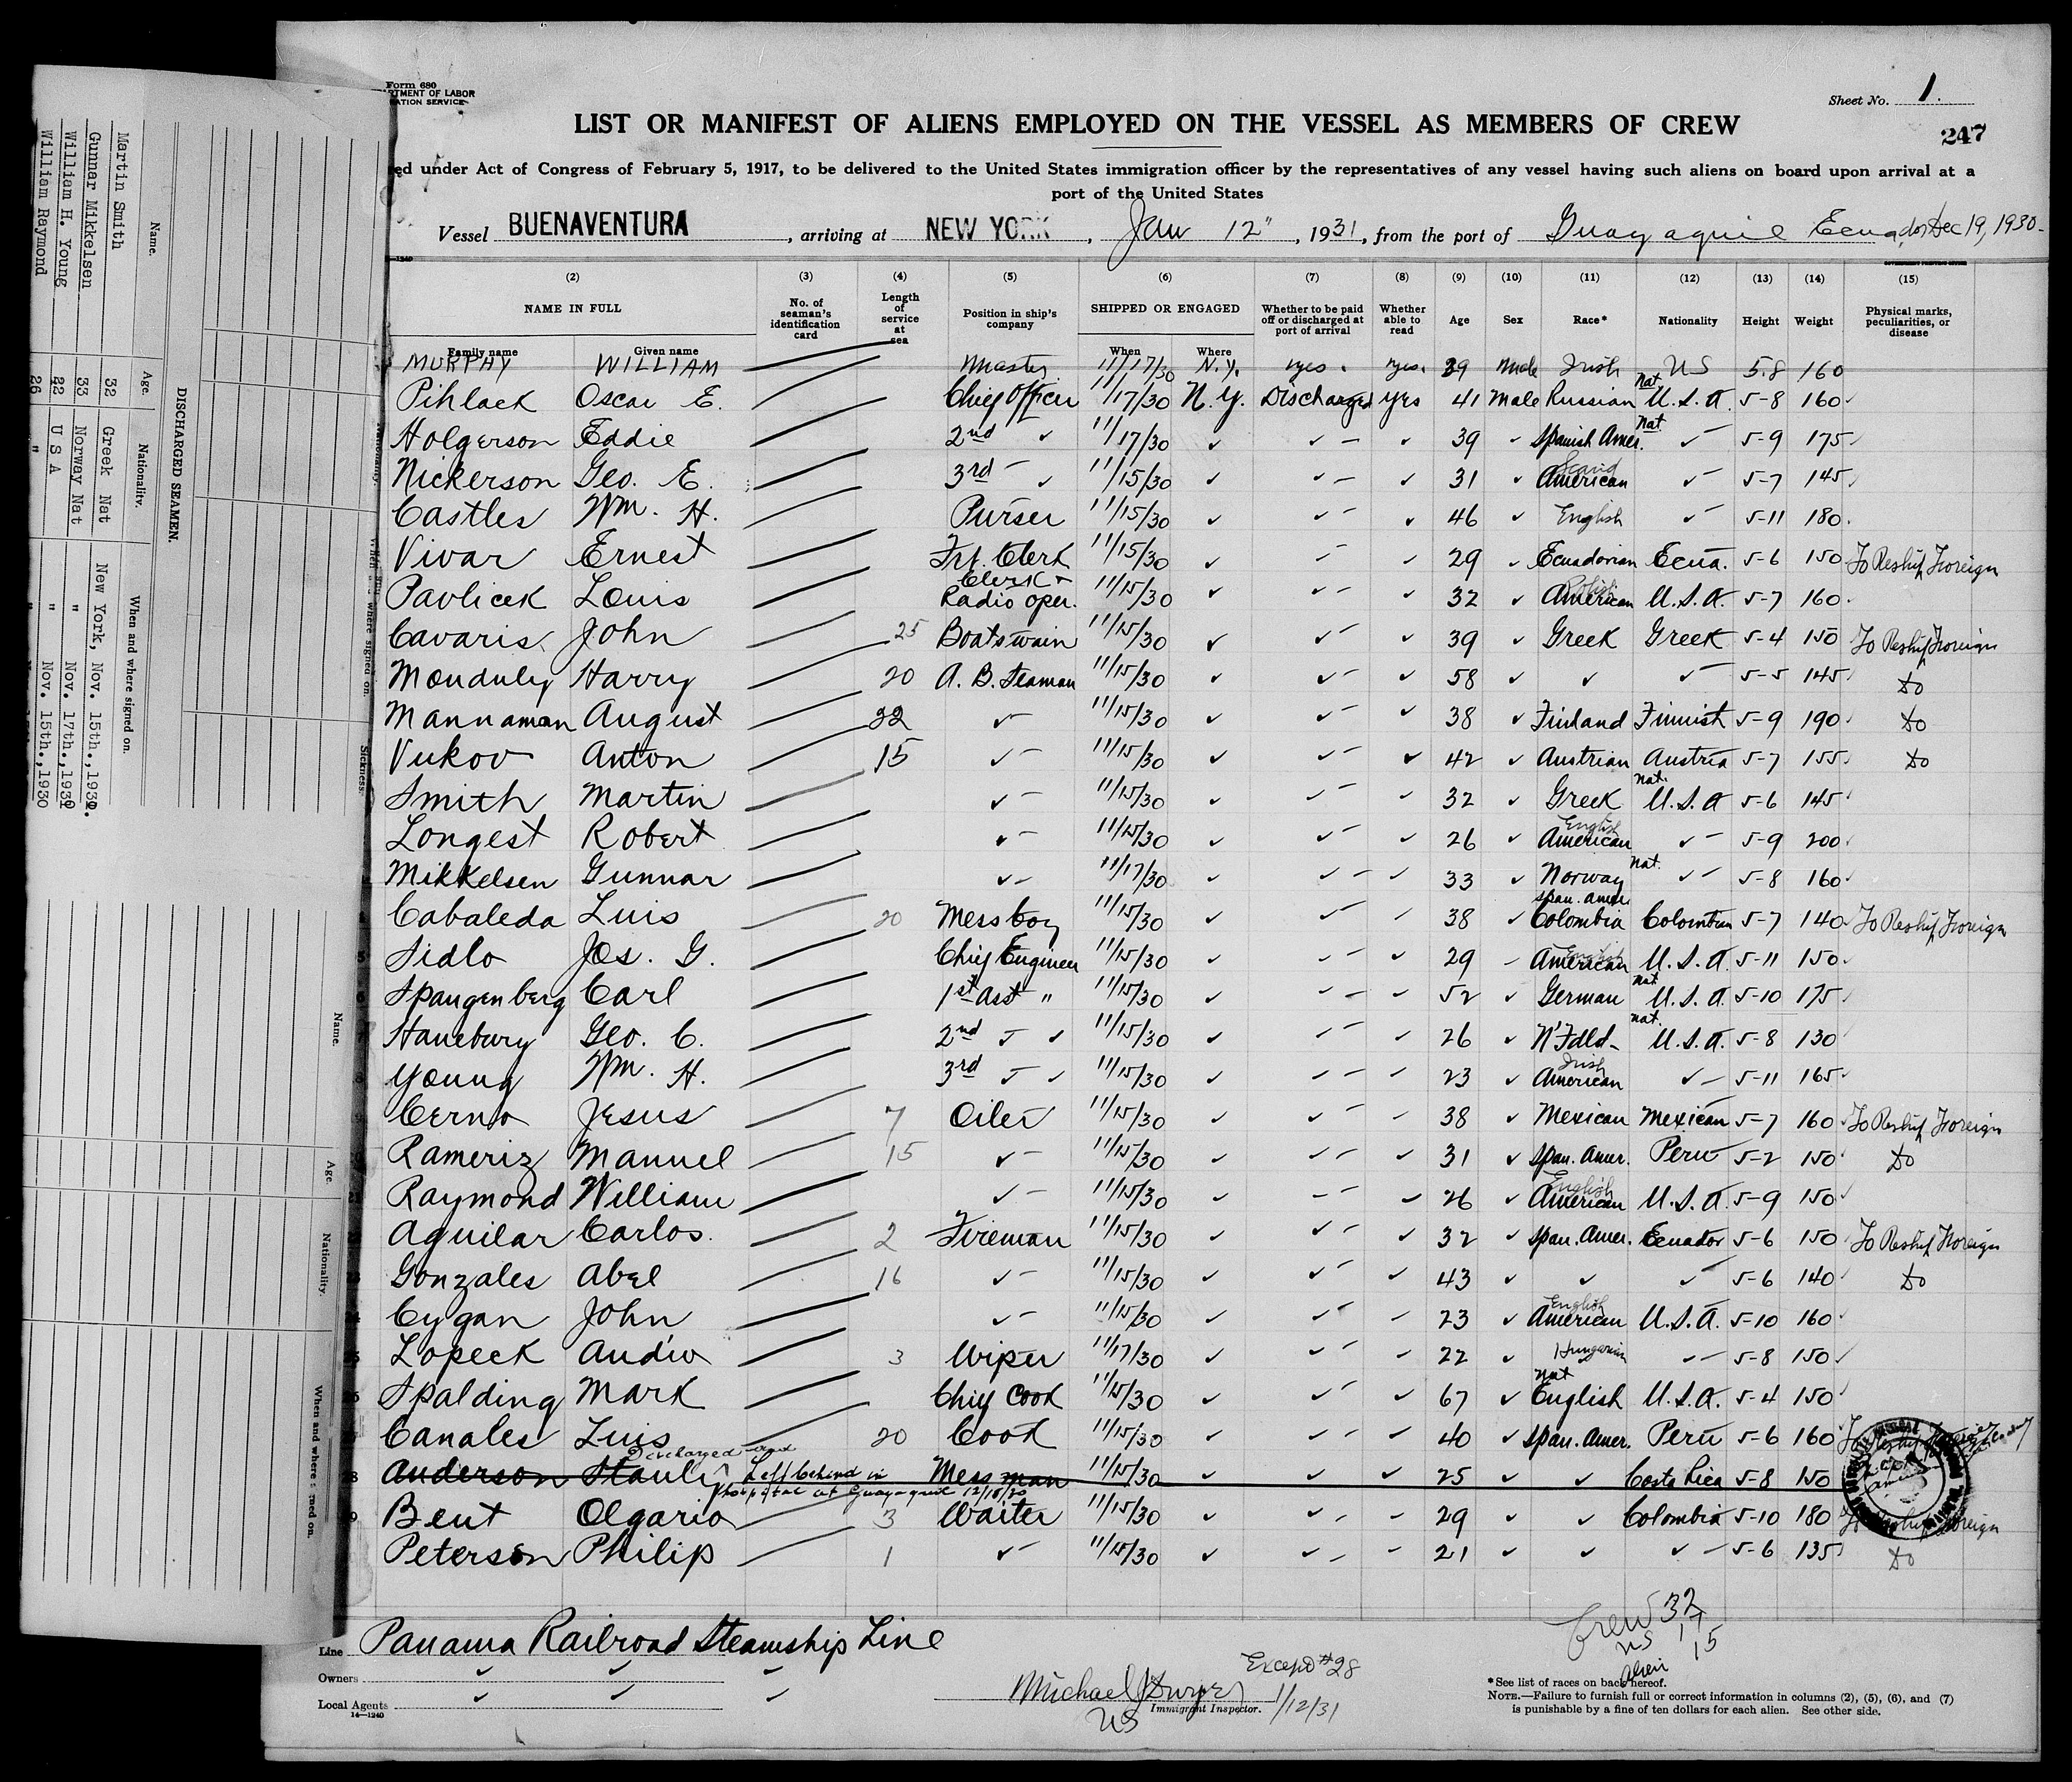 Form 680
TMENT OF LABOR
ATION SERVICE
Sheet No. 1.
LIST OR MANIFEST OF ALIENS EMPLOYED ON THE VESSEL AS MEMBERS OF CREW
247
ed under Act of Congress of February 5, 1917, to be delivered to the United States immigration officer by the representatives of any vessel having such aliens on board upon arrival at a
port of the United States
Vessel BUENAVENTURA, arriving at NEW YORK, Jan 12", 1931, from the port of Guayaquil Ecuador Dec 19, 1930.
(2) (3) (4) (5) (6) (7) (8) (9) (10) (11) (12) (13) (14) (15)
NAME IN FULL No. of seaman's identification card Length of service at sea Position in ship's company SHIPPED OR ENGAGED Whether to be paid off or discharged at port of arrival Whether able to read Age Sex Race* Nationality Height Weight Physical marks, peculiarities, or disease
Family name Given name When Where
MURPHY WILLIAM Master 11/17/30 N.Y. yes yes 39 Male Irish US 5.8 160
Pihlack Oscar E. Chief Officer 11/17/30 N.Y. Discharged yes 41 Male Russian Nat. U.S.A. 5-8 160
Holgerson Eddie 2nd ✓ 11/17/30 ✓ ✓ - ✓ 39 ✓ Spanish Amer. Nat. ✓ - 5-9 175
Nickerson Geo. E. 3rd - ✓ 11/15/30 ✓ ✓ - ✓ 31 ✓ Scand American ✓ - 5-7 145
Castles Wm. H. Purser 11/15/30 ✓ ✓ - ✓ 46 ✓ English ✓ - 5-11 180
Vivar Ernest Frt. Clerk 11/15/30 ✓ ✓ - ✓ 29 ✓ Ecuadorian Ecua. 5-6 150 To Reship Foreign
Pavlicek Louis Clerk + Radio Oper. 11/15/30 ✓ ✓ - ✓ 32 ✓ Polish American U.S.A. 5-7 160
Cavaris John 25 Boatswain 11/15/30 ✓ ✓ - ✓ 39 ✓ Greek Greek 5-4 150 To Reship Foreign
Monduly Harry 20 A. B. Seaman 11/15/30 ✓ ✓ - ✓ 58 ✓ ✓ ✓ - 5-5 145 Do
Mannaman August 22 ✓ - 11/15/30 ✓ ✓ - ✓ 38 ✓ Finland Finnish 5-9 190 Do
Vukov Anton 15 ✓ - 11/15/30 ✓ ✓ - ✓ 42 ✓ Austrian Austria 5-7 155 Do
Smith Martin ✓ - 11/15/30 ✓ ✓ - ✓ 32 ✓ Greek Nat. U.S.A 5-6 145
Longest Robert ✓ - 11/15/30 ✓ ✓ - ✓ 26 ✓ English American ✓ - 5-9 200
Mikkelsen Gunnar ✓ - 11/17/30 ✓ ✓ - ✓ 33 ✓ Norway Nat. ✓ - 5-8 160
Cabaleda Luis 20 Messboy 11/15/30 ✓ ✓ - ✓ 38 ✓ Span. Amer. Colombia Colombian 5-7 140 To Reship Foreign
Sidlo Jos. G. Chief Engineer 11/15/30 ✓ ✓ - ✓ 29 - English American U.S.A. 5-11 150
Spangenberg Carl 1st Asst " 11/15/30 ✓ ✓ - ✓ 52 ✓ German Nat U.S.A. 5-10 175
Hanebury Geo. C. 2nd ✓ ✓ 11/15/30 ✓ ✓ - ✓ 26 ✓ N'Fdld- Nat. U.S.A. 5-8 130
Young Wm. H. 3rd ✓ ✓ 11/15/30 ✓ ✓ - ✓ 23 ✓ Irish American ✓ - 5-11 165
Cerno Jesus 7 Oiler 11/15/30 ✓ ✓ - ✓ 38 ✓ Mexican Mexican 5-7 160 To Reship Foreign
Rameriz Manuel 15 ✓ - 11/15/30 ✓ ✓ - ✓ 31 ✓ Span. Amer. Peru 5-2 150 Do
Raymond William ✓ - 11/15/30 ✓ ✓ - ✓ 26 ✓ English American U.S.A. 5-9 150
Aguilar Carlos 2 Fireman 11/15/30 ✓ ✓ - ✓ 32 ✓ Span. Amer. Ecuador 5-6 150 To Reship Foreign
Gonzales Abel 16 ✓ - 11/15/30 ✓ ✓ - ✓ 43 ✓ ✓ ✓ - 5-6 140 Do
Cygan John ✓ - 11/15/30 ✓ ✓ - ✓ 23 ✓ English American U.S.A. 5-10 160
Lopeck Andiw 3 Wiper 11/17/30 ✓ ✓ - ✓ 22 ✓ Hungarian ✓ - 5-8 150
Spalding Mark Chief Cook 11/15/30 ✓ ✓ - ✓ 67 ✓ Nat English U.S.A. 5-4 150
Canales Luis 20 Cook 11/15/30 ✓ ✓ - ✓ 40 ✓ Span. Amer. Peru 5-6 160
28 Anderson Stanly Discharged and Left behind in hospital at Guayaquil 12/18/30 Mess man 11/15/30 ✓ ✓ ✓ 25 ✓ ✓ Costa Rica 5-8 150
Bent Olgario 3 Waiter 11/15/30 ✓ ✓ - ✓ 29 ✓ ✓ Colombia 5-10 180 To Reship Foreign
Peterson Philip 1 ✓ - 11/15/30 ✓ ✓ - ✓ 21 ✓ ✓ ✓ - 5-6 135 Do
Crew 32
US 17
Alien 15
Line Panama Railroad Steamship Line
Owners ✓ ✓ ✓
Local Agents ✓ ✓ ✓
14—1240
Except #28
Michael J Dwyer
US Immigrant Inspector. 1/12/31
*See list of races on back hereof.
NOTE.—Failure to furnish full or correct information in columns (2), (5), (6), and (7)
is punishable by a fine of ten dollars for each alien. See other side.
DISCHARGED SEAMEN.
Name. Age. Nationality. When and where signed on.
Martin Smith 32 Greek Nat New York, Nov. 15th.,1930.
Gunnar Mikkelsen 33 Norway Nat " Nov. 17th.,1930
William H. Young 22 U S A " Nov. 15th.,1930
William Raymond 26 " "
Sickness.
Name. Age. Nationality. When and where signed on.